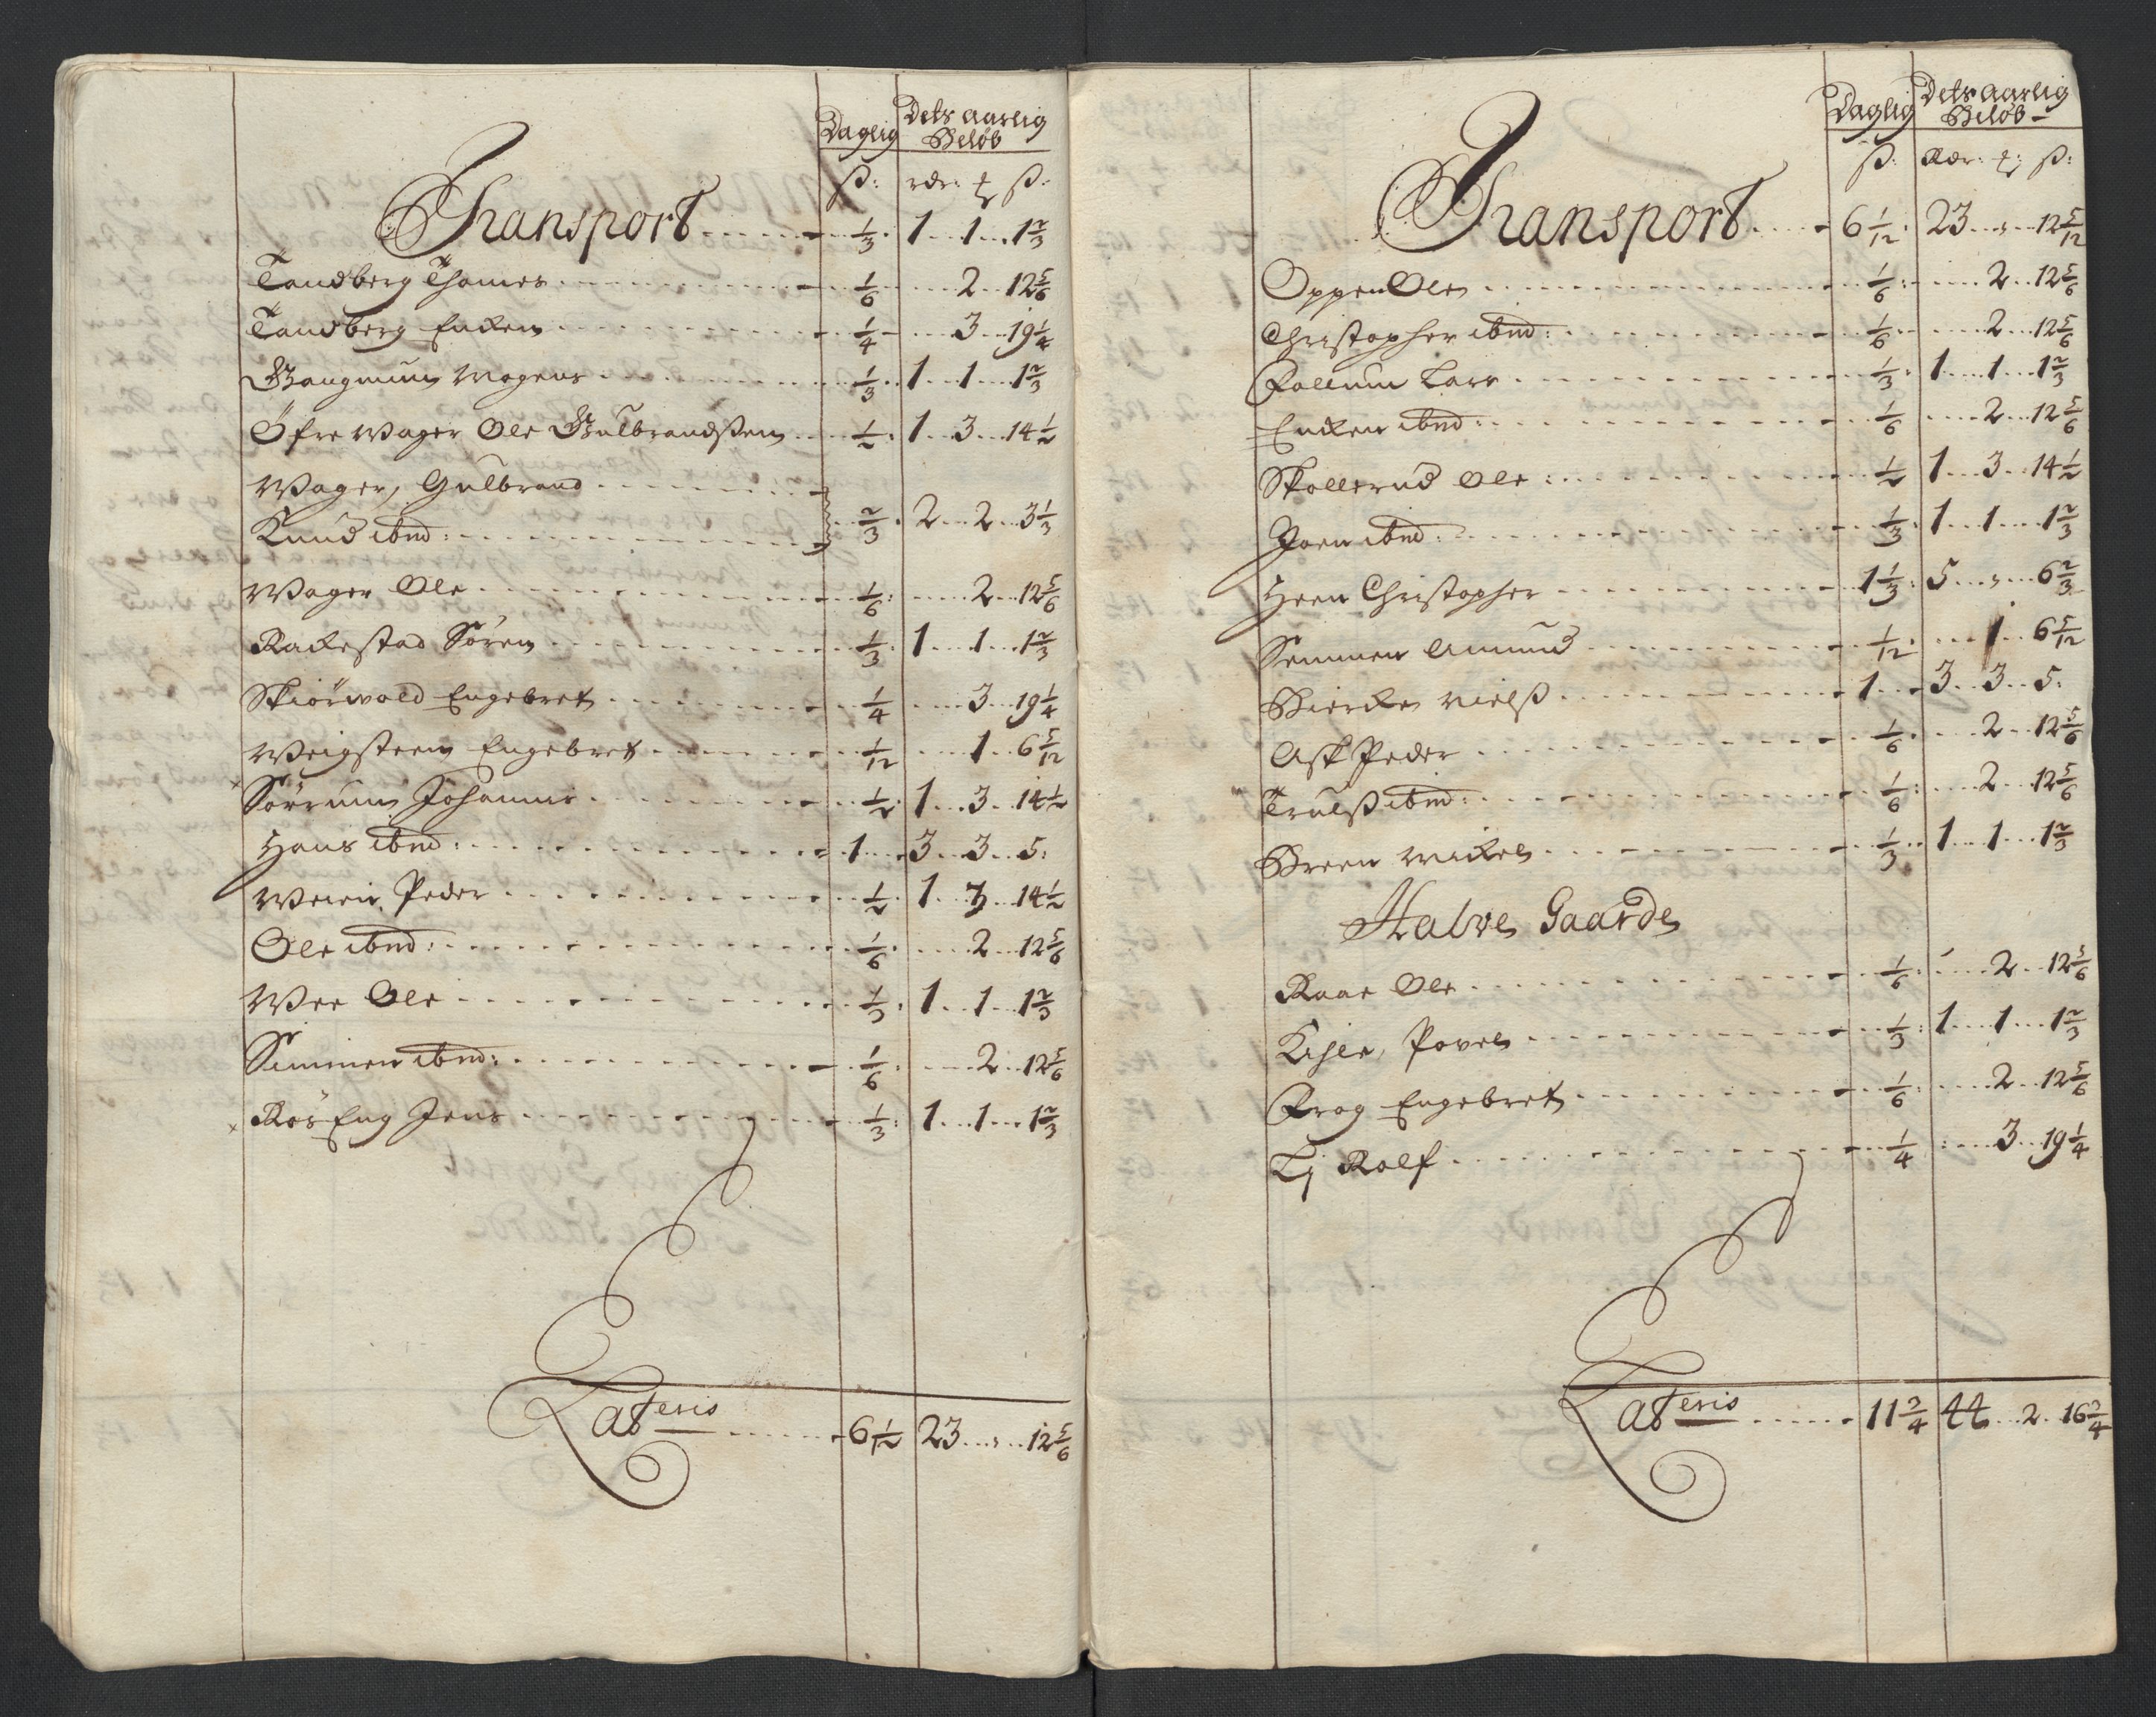 Daglig Dets aarlig
Beløb
ß: rdr: ß:
Transport 1/3 1 1 1 2/3
Tandberg Thomes 1/6 2 12 5/6
Tandberg Enken 1/4 3 19 1/4
Mogens 1/3 1 1 1 2/3
Öfre Wager Ole Gulbrandßen 1/2 1 3 14 1/2
Wager, Gulbrand
Knud ibmd: 2/3 2 2 3 1/3
Wager Ole 1/6 2 12 5/6
Rackestad Sören 1/3 1 1 1 2/3
Skiörwold Engebret 1/4 3 19 1/4
Weigsteen Engebret 1/12 1 6 5/12
Sörrum Johannis 1/2 1 3 14 1/2
Hans ibmd: 1 3 3 5:
Weien Peder 1/2 1 3 14 1/2
Ole ibmd: 1/6 2 12 5/6
Wee Ole 1/3 1 1 1 2/3
Simmen ibmd: 1/6 2 12 5/6
Rös Eng Jens 1/3 1 1 1 2/3
Lateris 6 1/12 23 12 5/6
Daglig Dets aarlig
Beløb
ß: Rdr: ß:
Transport 6 1/12 23 12 5/12
Oppen Ole 1/6 2 12 5/6
Christopher ibmd: 1/6 2 12 5/6
Follum Lars 1/3 1 1 1 2/3
Enken ibmd: 1/6 2 12 5/6
Skollerud Ole: 1/2 1 3 14 1/2
Joen ibmd: 1/3 1 1 1 2/3
Heen Christopher 1 1/3 5 6 2/3
Semmen Amund 1/12 1 6 5/12
Bierke Nielß 1 3 3 5:
Ask Peder 1/6 2 12 5/6
Trulß ibmd: 1/6 2 12 5/6
Breen Mikel 1/3 1 1 1 2/3
Halve Gaarde
Raae Ole 1/6 2 12 5/6
Kihle, Povel 1/3 1 1 1 2/3
Frog Engebret 1/6 2 12 5/6
Lj Rolf 1/4 3 19 1/4
Lateris 11 3/4 44 2 16 3/4